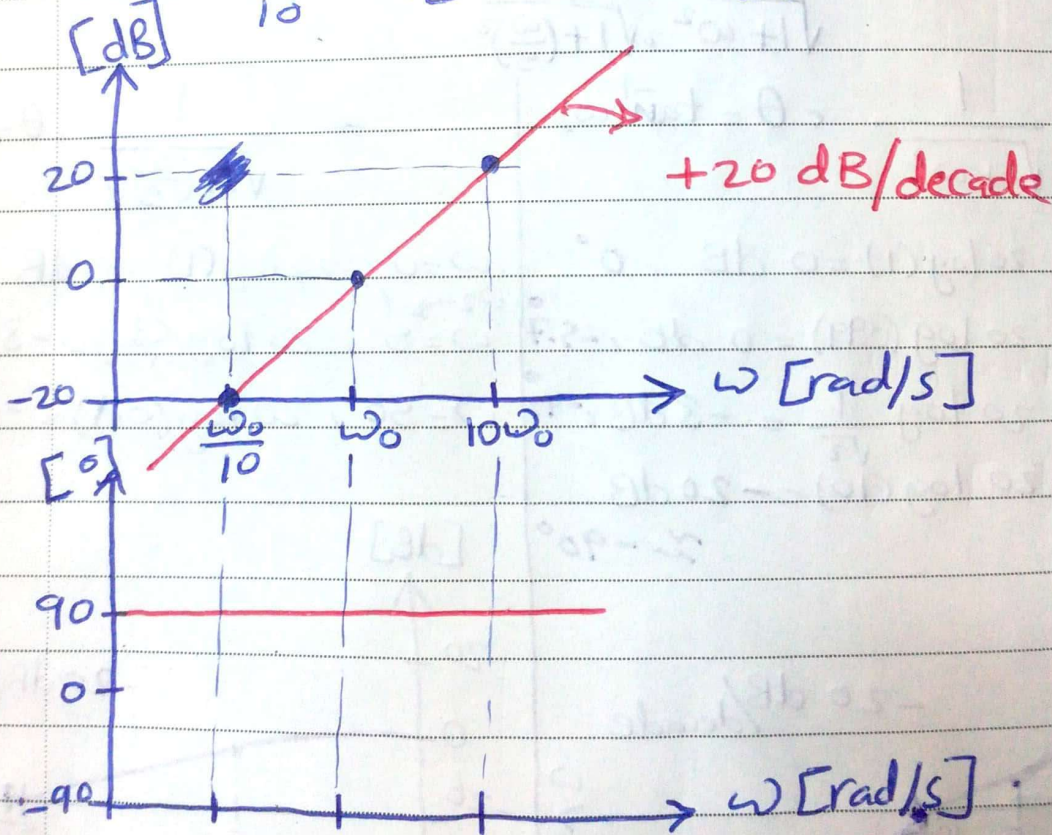 10
[dB]
20
+20 dB/decade
0
-20
ω [rad/s]
ω₀/10
ω₀
10ω₀
[°]
90
0
-90
ω [rad/s]